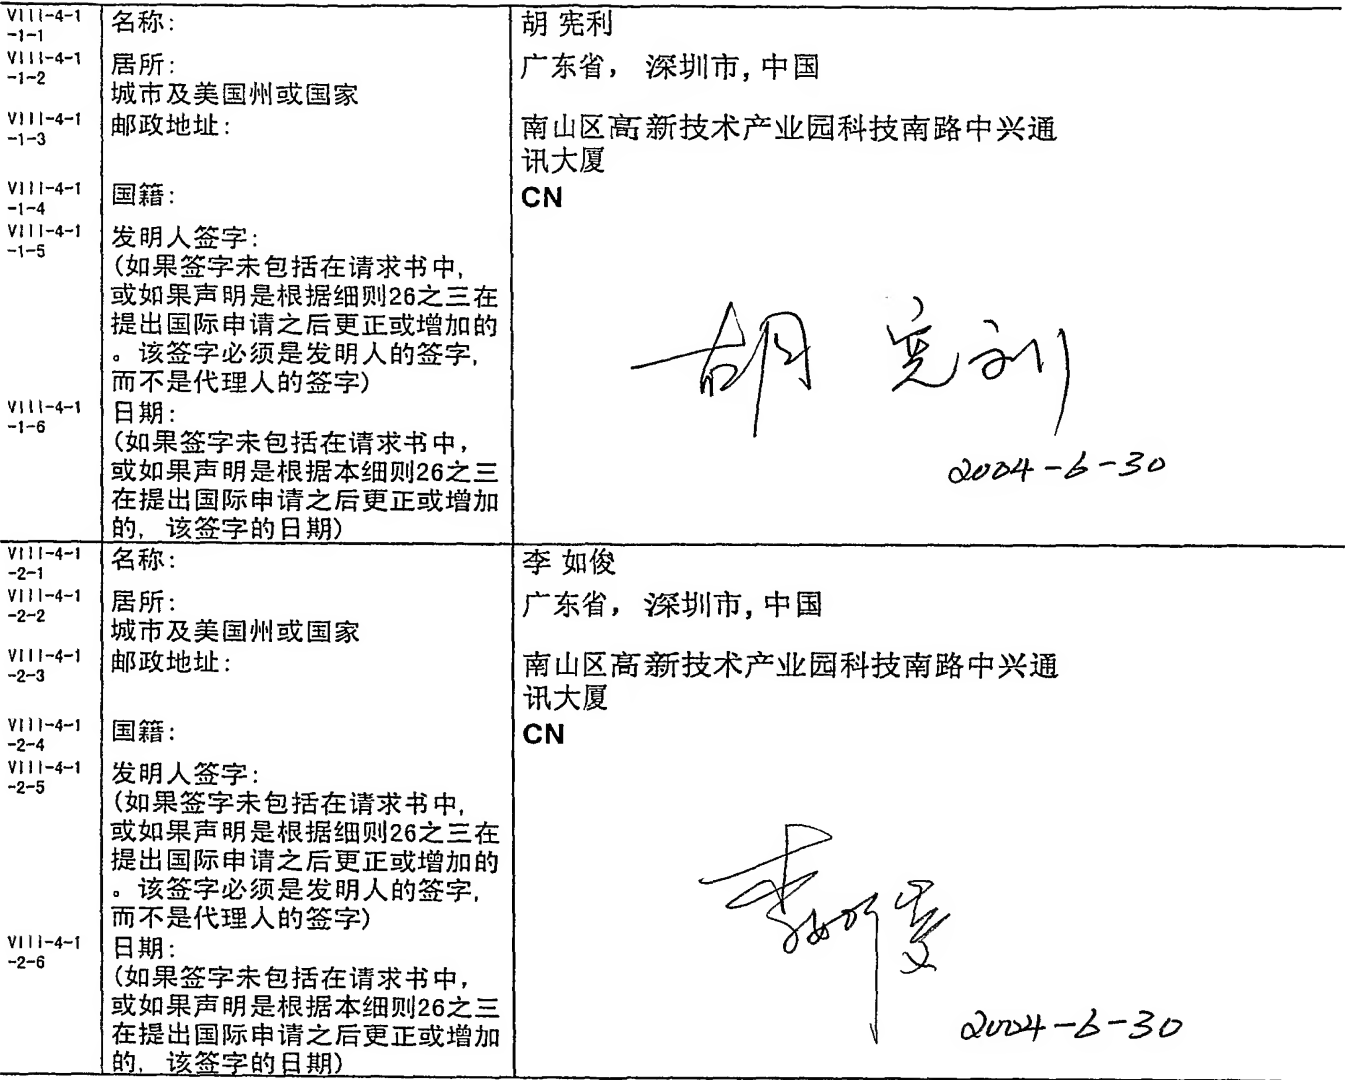 VIII-4-1
-1-1
名称: 胡 宪利
VIII-4-1
-1-2
居所: 广东省， 深圳市, 中国
城市及美国州或国家
VIII-4-1
-1-3
邮政地址: 南山区高新技术产业园科技南路中兴通
讯大厦
VIII-4-1
-1-4
国籍: CN
VIII-4-1
-1-5
发明人签字:
(如果签字未包括在请求书中,
或如果声明是根据细则26之三在
提出国际申请之后更正或增加的
。该签字必须是发明人的签字,
而不是代理人的签字)
胡 宪利
VIII-4-1
-1-6
日期:
(如果签字未包括在请求书中，
或如果声明是根据本细则26之三
在提出国际申请之后更正或增加
的, 该签字的日期)
2004-6-30
VIII-4-1
-2-1
名称: 李 如俊
VIII-4-1
-2-2
居所: 广东省， 深圳市, 中国
城市及美国州或国家
VIII-4-1
-2-3
邮政地址: 南山区高新技术产业园科技南路中兴通
讯大厦
VIII-4-1
-2-4
国籍: CN
VIII-4-1
-2-5
发明人签字:
(如果签字未包括在请求书中,
或如果声明是根据细则26之三在
提出国际申请之后更正或增加的
。该签字必须是发明人的签字,
而不是代理人的签字)
李如俊
VIII-4-1
-2-6
日期:
(如果签字未包括在请求书中，
或如果声明是根据本细则26之三
在提出国际申请之后更正或增加
的, 该签字的日期)
2004-6-30